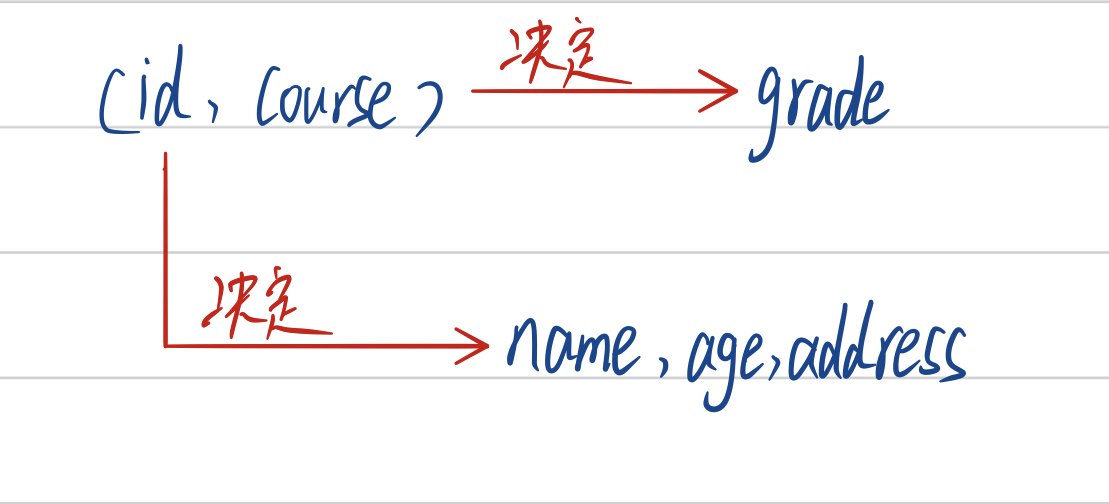 决定
(id, course) grade
决定
name, age, address